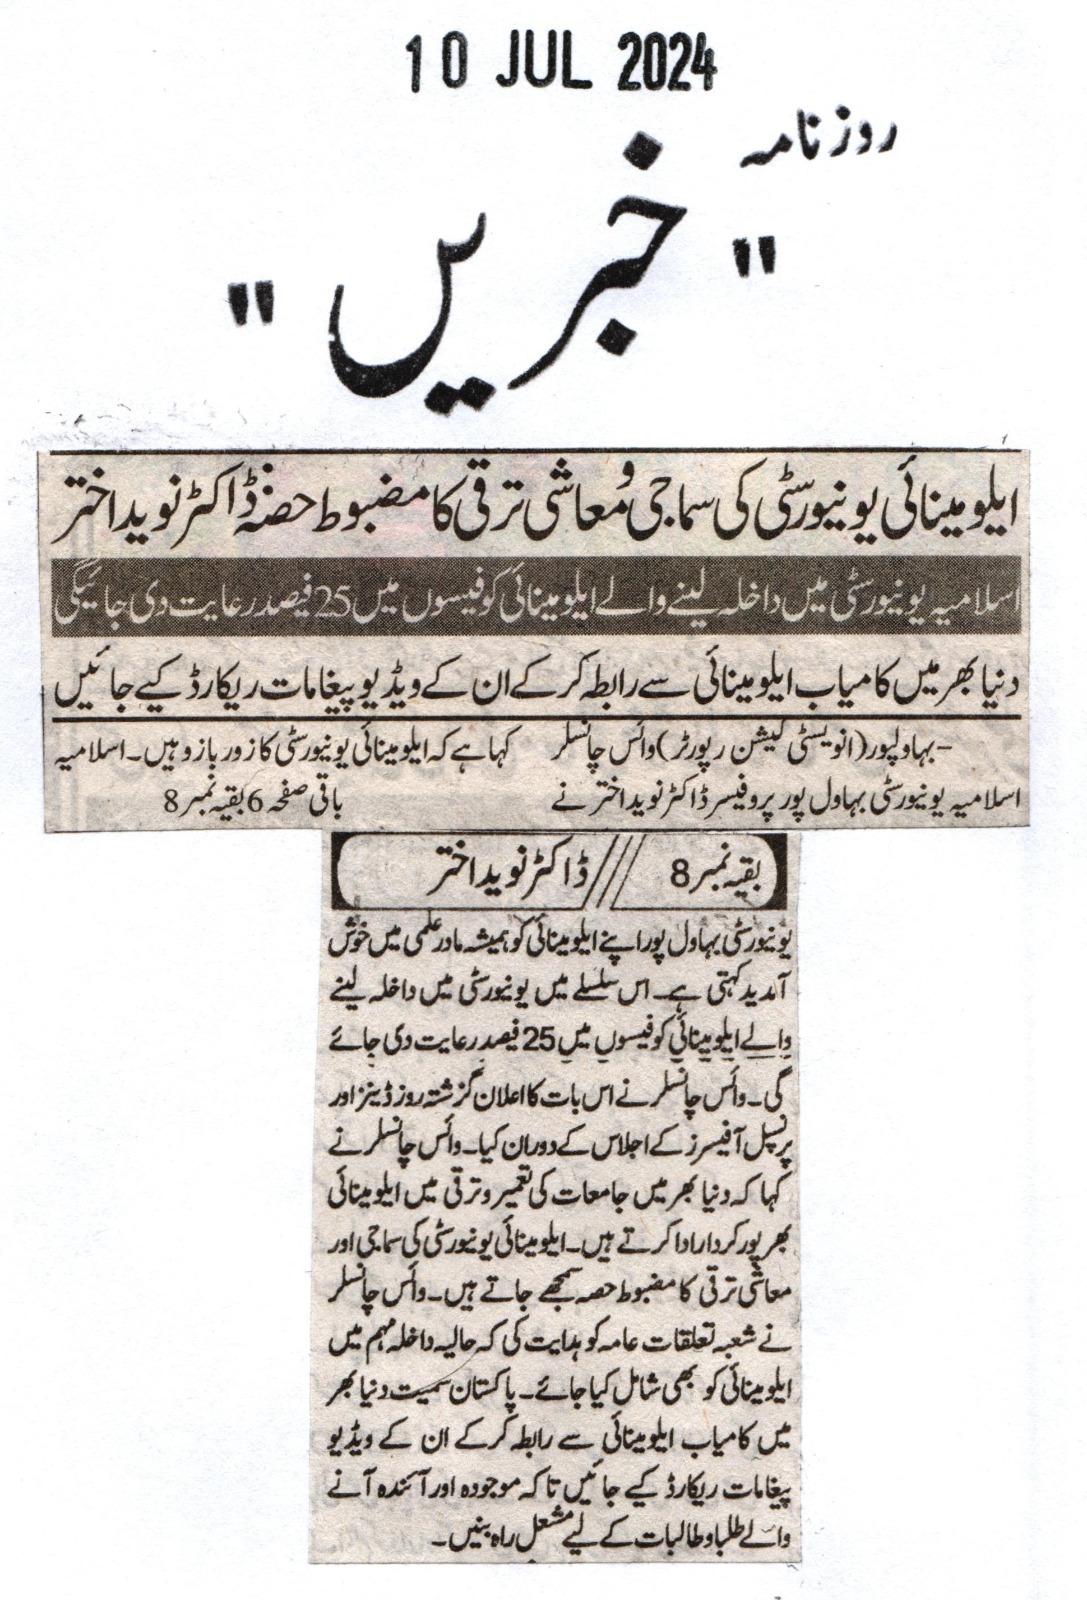 10 JUL 2024
روزنامہ
"خبریں"
ایلومینائی یونیورسٹی کی سماجی و معاشی ترقی کا مضبوط حصہ ڈاکٹر نوید اختر
اسلامیہ یونیورسٹی میں داخلہ لینے والے ایلومینائی کو فیسوں میں 25 فیصد رعایت دی جائیگی
دنیا بھر میں کامیاب ایلومینائی سے رابطہ کر کے ان کے ویڈیو پیغامات ریکارڈ کیے جائیں
-بہاولپور (انویسٹی گیشن رپورٹر) وائس چانسلر
اسلامیہ یونیورسٹی بہاول پور پروفیسر ڈاکٹر نوید اختر نے
کہا ہے کہ ایلومینائی یونیورسٹی کا زور بازو ہیں۔ اسلامیہ
باقی صفحہ 6 بقیہ نمبر 8
بقیہ نمبر 8 /// ڈاکٹر نوید اختر
یونیورسٹی بہاول پور اپنے ایلومینائی کو ہمیشہ مادر علمی میں خوش
آمدید کہتی ہے۔ اس سلسلے میں یونیورسٹی میں داخلہ لینے
والے ایلومینائی کو فیسوں میں 25 فیصد رعایت دی جائے
گی۔ وائس چانسلر نے اس بات کا اعلان گزشتہ روز ڈینز اور
پرنسپل آفیسرز کے اجلاس کے دوران کیا۔ وائس چانسلر نے
کہا کہ دنیا بھر میں جامعات کی تعمیر و ترقی میں ایلومینائی
بھرپور کردار ادا کرتے ہیں۔ ایلومینائی یونیورسٹی کی سماجی اور
معاشی ترقی کا مضبوط حصہ سمجھے جاتے ہیں۔ وائس چانسلر
نے شعبہ تعلقات عامہ کو ہدایت کی کہ حالیہ داخلہ مہم میں
ایلومینائی کو بھی شامل کیا جائے۔ پاکستان سمیت دنیا بھر
میں کامیاب ایلومینائی سے رابطہ کر کے ان کے ویڈیو
پیغامات ریکارڈ کیے جائیں تاکہ موجودہ اور آئندہ آنے
والے طلبا و طالبات کے لیے مشعل راہ بنیں۔